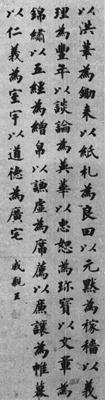 以洪筆為鋤耒以紙札為良田以元默為稼穡以義
理為豐年以談論為英華以忠恕為珍寶以文章為
錦繡以五經為繒帛以謙虛為席薦以廉讓為帷幕
以仁義為室宇以道德為廣宅
成親王